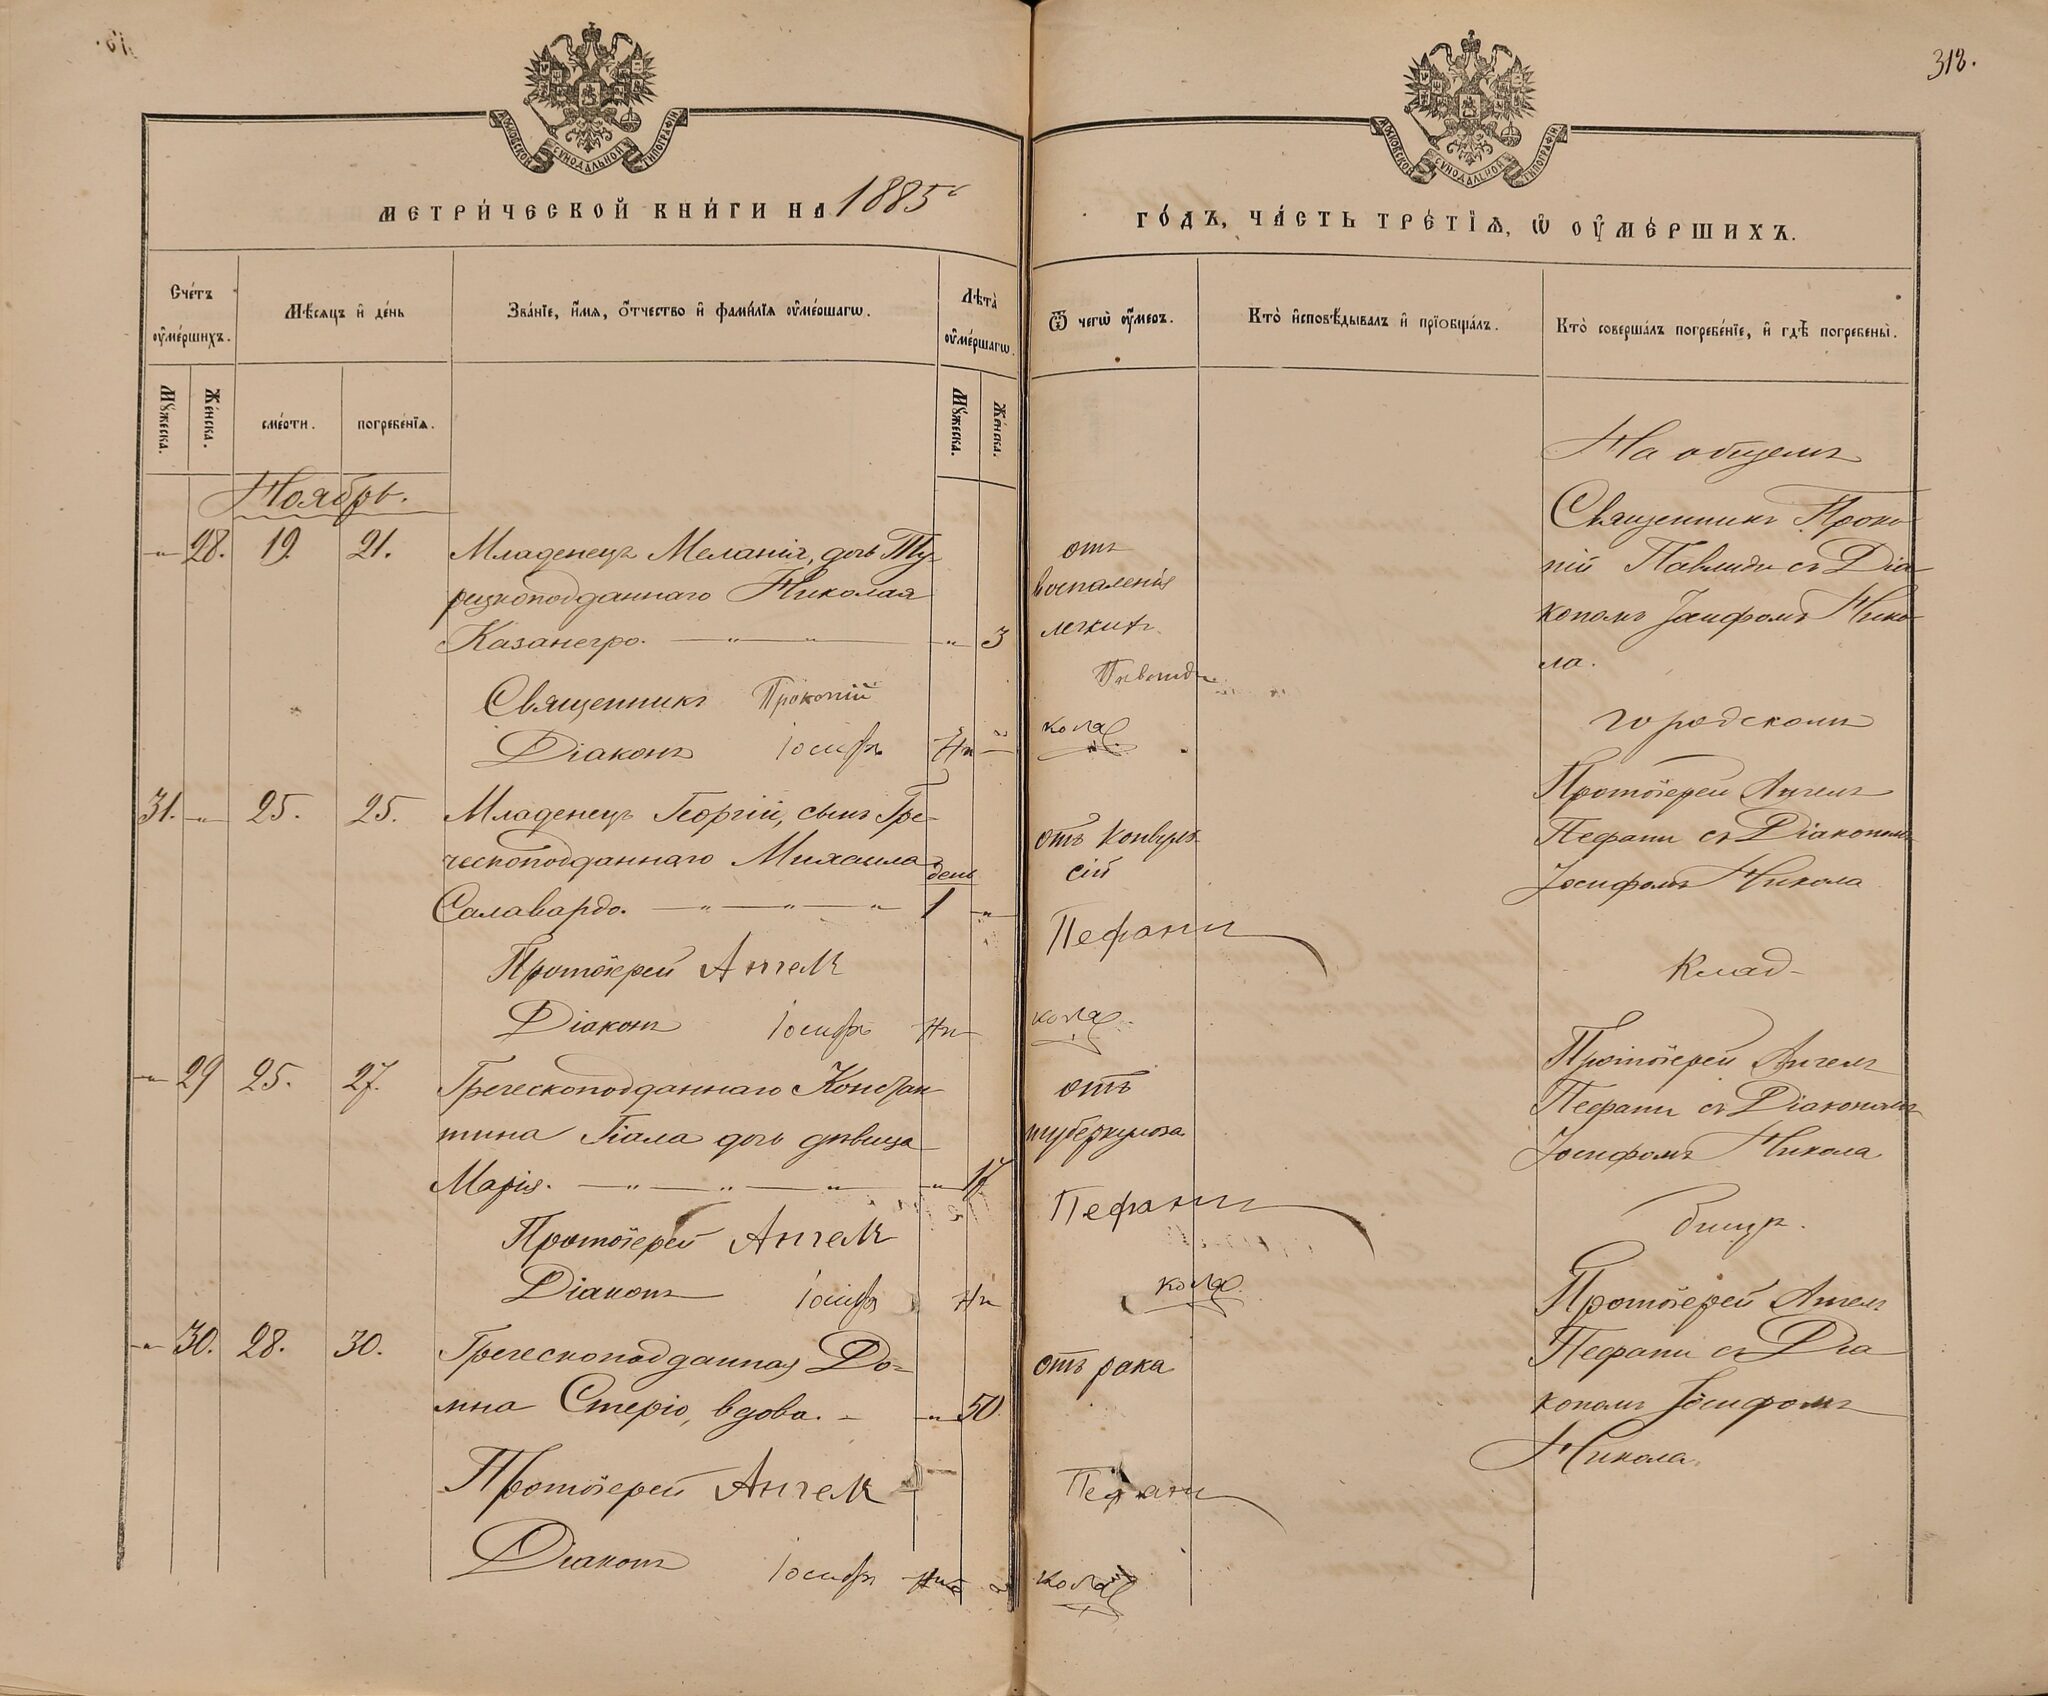 318.
МОСКОВСКОЙ СѴНОДАЛЬНОЙ ТИПОГРАФІИ
МОСКОВСКОЙ СѴНОДАЛЬНОЙ ТИПОГРАФІИ
МЕТРИ́ЧЕСКОЙ КНИ́ГИ НА 1885
ГО́ДЪ, ЧА́СТЬ ТРЕ́ТІѦ, Ѡ ОУ҆МЕ́РШИХЪ.
Сче́тъ оу҆ме́ршихъ.
Мѣ́сяцъ и҆ де́нь
Зва́нїе, и҆́мя, ѻ҆́тчество и҆ фами́лїя оу҆ме́ршагѡ.
Лѣта̀ оу҆ме́ршагѡ.
Ѿ чегѡ̀ оу҆́меръ.
Кто̀ и҆сповѣ́дывалъ и҆ прїобща́лъ.
Кто̀ соверша́лъ погребе́нїе, и҆ гдѣ̀ погребены̀.
Мꙋ́жеска.
Же́нска.
сме́рти.
погребе́нїѧ.
Мꙋ́жеска.
Же́нска.
Ноябрь.
На общемъ
28. 19. 21. Младенецъ Меланія, дочь Ту-
рецкоподданнаго Николая
Казанегро. 3
отъ
воспаленія
легкихъ.
Священникъ Проко-
пій Павлиди съ Діа-
кономъ Іосифомъ Нико-
ла.
Священникъ Прокопій
Діаконъ Іосифъ Ни
кола
городскомъ
31. 25. 25. Младенецъ Георгій, сынъ Гре-
ческоподданнаго Михаила
день
Салавардо. 1
отъ конвуль-
сій
Протоіерей Ангелъ
Пефани съ Діакономъ
Іосифомъ Никола
Протоіерей Ангелъ Пефани
Діаконъ Іосифъ Ни
кола
Клад-
29 25. 27. Греческоподданнаго Констан-
тина Гіала дочь дѣвица
Марія. 17
отъ
туберкулоза
Протоіерей Ангелъ
Пефани съ Діакономъ
Іосифомъ Никола
Протоіерей Ангелъ Пефани
Діаконъ Іосифъ Ни
кола
бищѣ.
30. 28. 30. Греческоподданная До-
мна Стеріо, вдова. 50.
отъ рака
Протоіерей Ангелъ
Пефани съ Діа-
кономъ Іосифомъ
Никола.
Протоіерей Ангелъ Пефани
Діаконъ Іосифъ Ни
кола